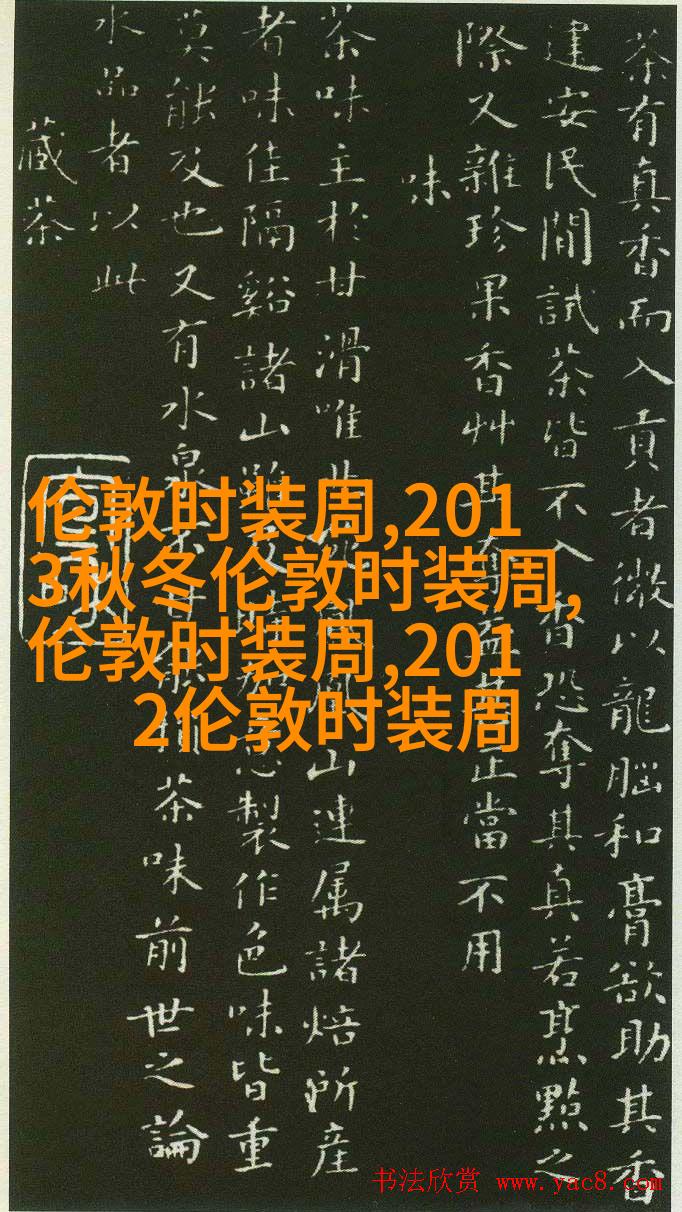 茶有真香而入貢者微以龍腦和膏欲助其香
建安民間試茶皆不入香恐奪其真若烹點之
際又雜珍果香艸其奪益甚正當不用
味
茶味主於甘滑唯山連属諸焙所産
者味佳隔谿諸山雖及意製作色味皆重
莫能及也又有水泉不甘能損茶味前世之論
水品者以此
藏茶
伦敦时装周,201
3秋冬伦敦时装周,
伦敦时装周,201
2伦敦时装周
书法欣赏 www.yac8.com